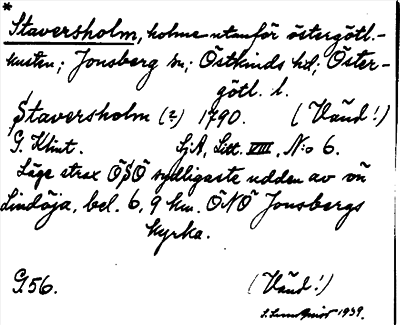 *
Staversholm, holme utanför östergötl.-
kusten; Jonsberg sn; Östkinds hd; Öster-
götl. l.
Staversholm (2) 1790. (Vänd!)
G. Klint. SjA, Litt. VIII, N:o 6.
Läge strax ÖSÖ sydligaste udden av ön
Lindöja, bel. 6,9 km. ÖNÖ Jonsbergs
kyrka.
G.56. (Vänd!)
S. Lundqvist 1939.